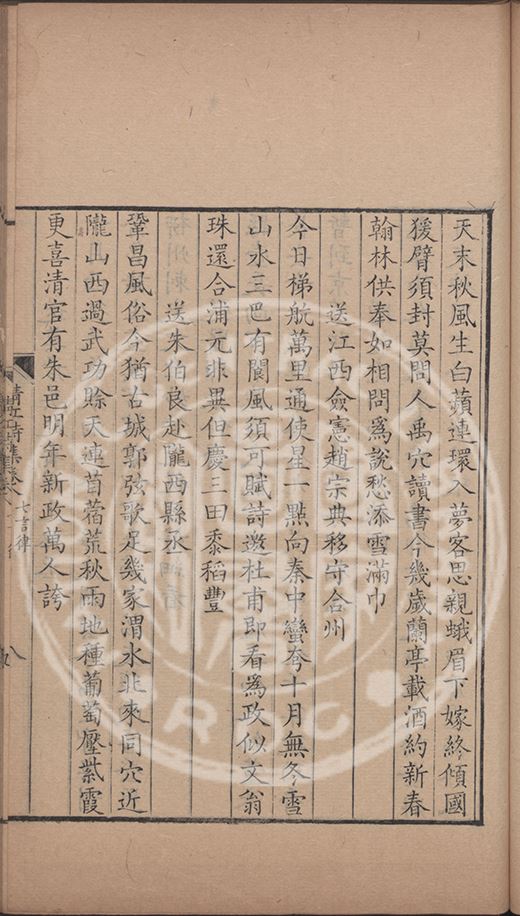 天末秋風生白蘋連環入夢客思親蛾眉下嫁終傾國
猨臂須封莫問人禹穴讀書今幾歲蘭亭載酒約新春
翰林供奉如相問爲說愁添雪滿巾
送江西僉憲趙宗典移守合州
今日梯航萬里通使星一點向秦中蠻夸十月無冬雪
山水三巴有閬風須可賦詩邀杜甫即看爲政似文翁
珠還合浦元非異但慶三田黍稻豐
送朱伯良赴隴西縣丞
鞏昌風俗今猶古城郭弦歌足幾家渭水北來同穴近
隴山西過武功賒天連苜蓿荒秋雨地種葡萄壓紫霞
更喜清官有朱邑明年新政萬人誇
清江詩集卷八
七言律
八